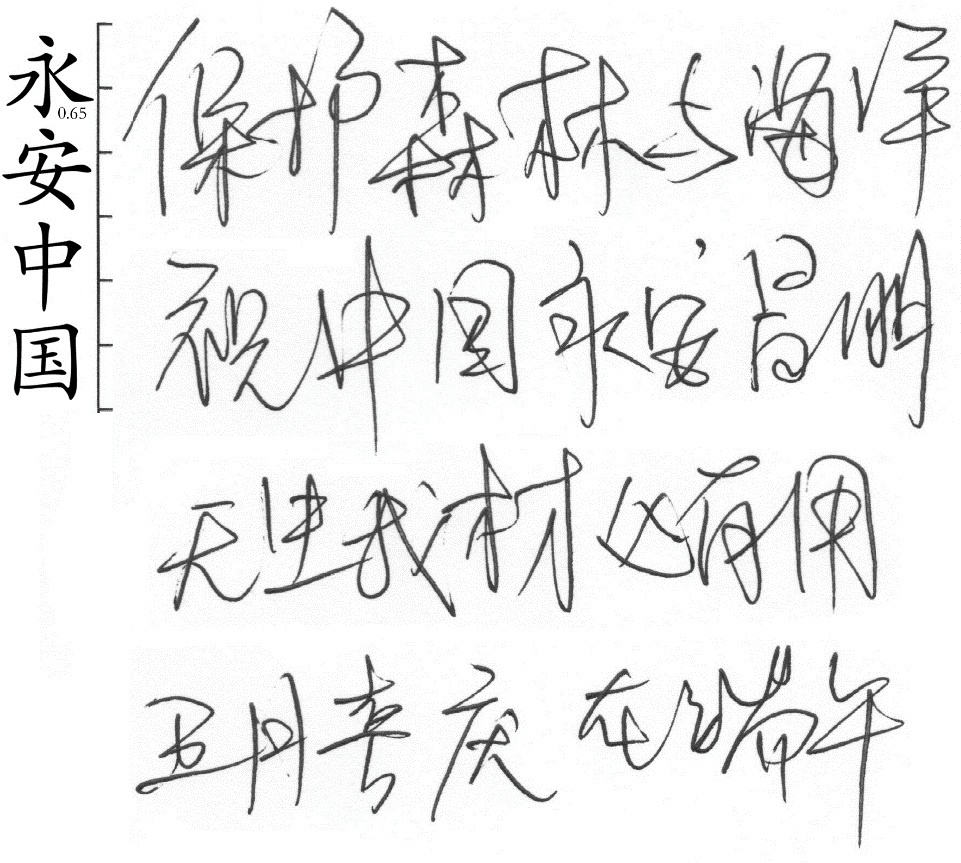 永安中国
0.65
保护森林与海洋
祝中国永安昌明
天生我材必有用
五月喜庆 在端午